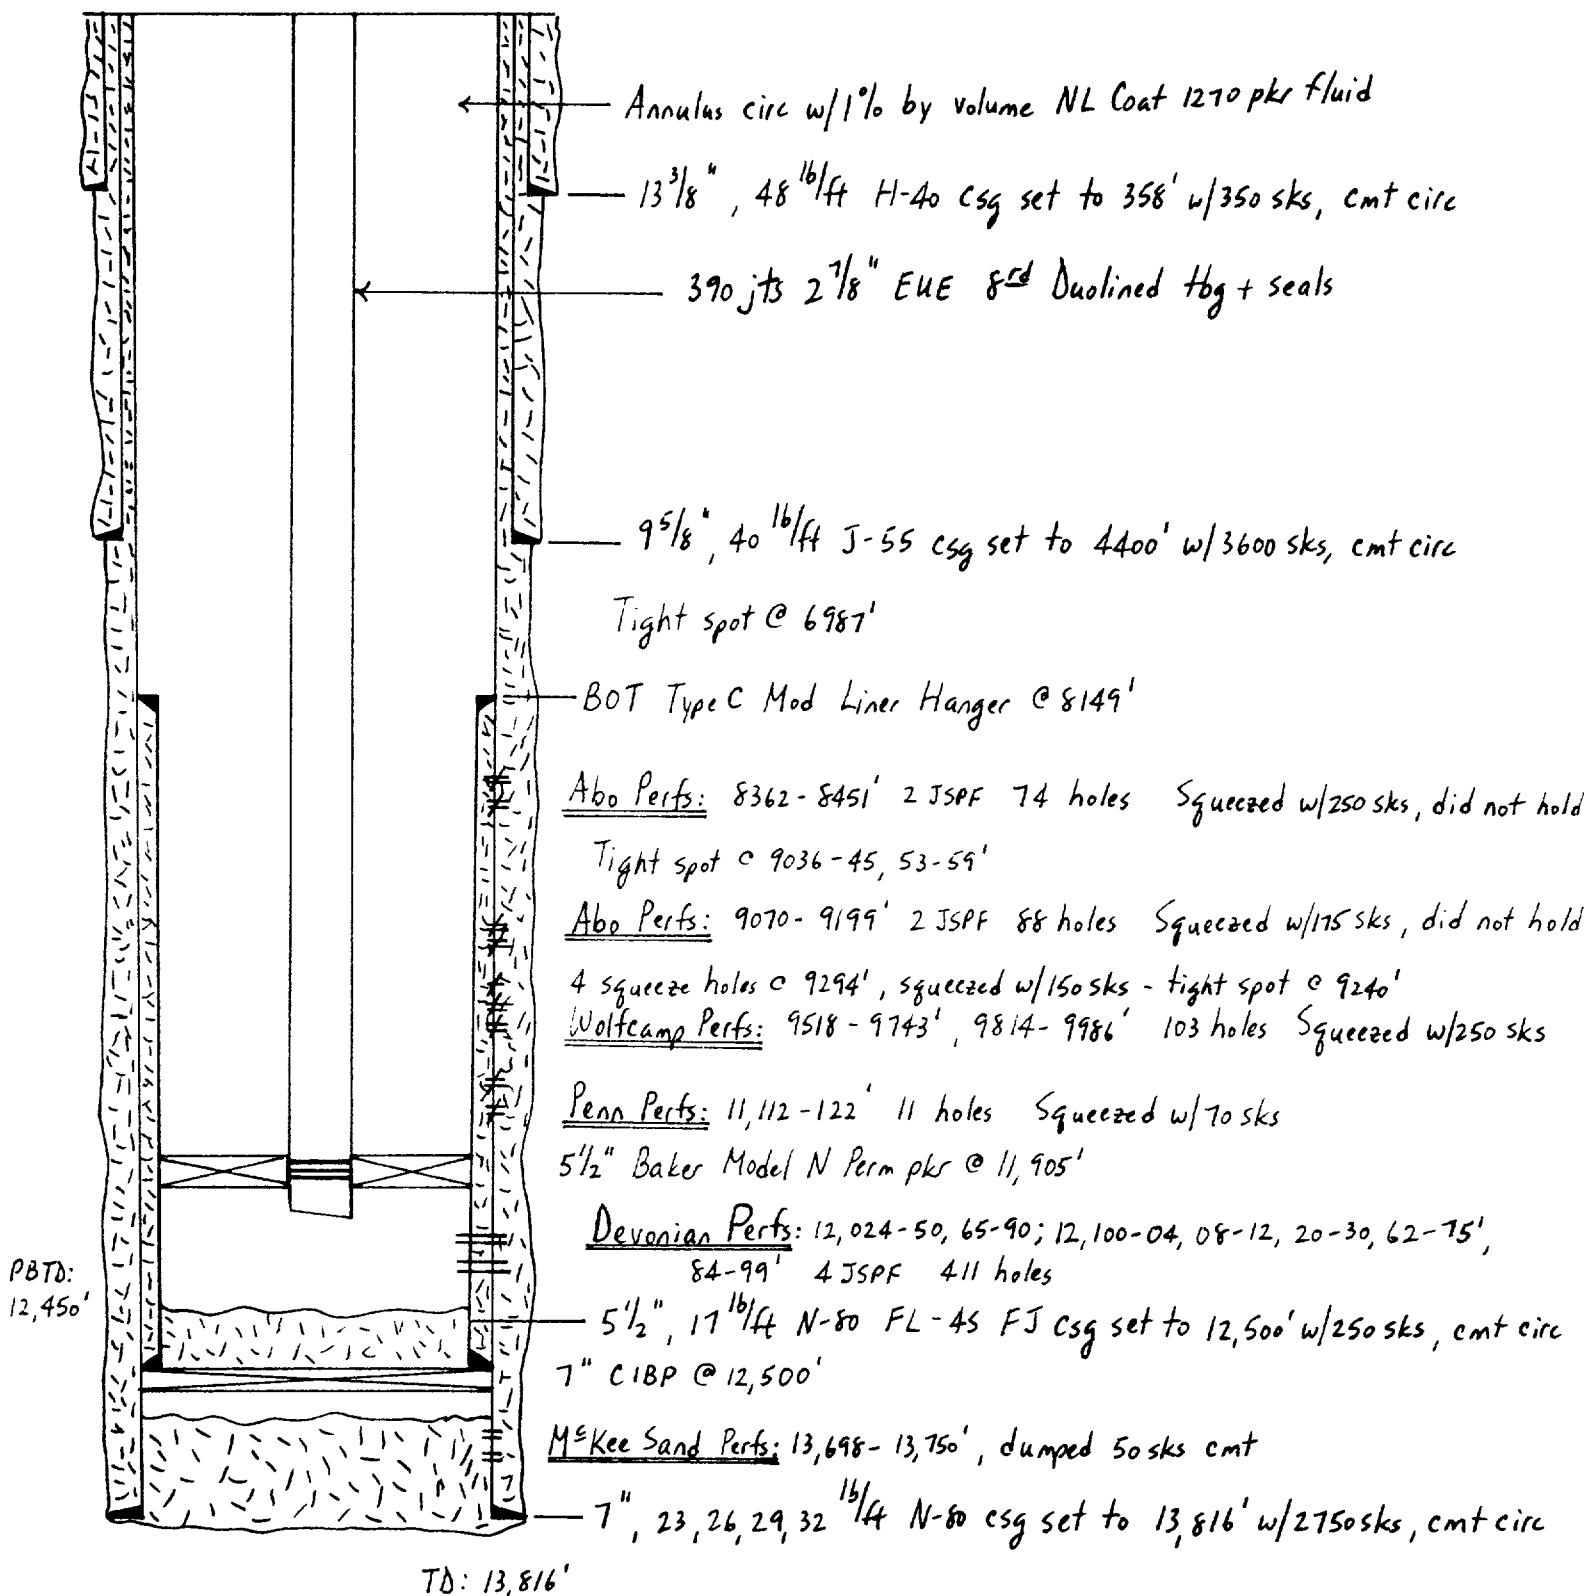 Annulus circ w/1% by volume NL Coat 1270 pkr fluid
13 3/8", 48 lb/ft H-40 csg set to 358' w/350 sks, cmt circ
390 jts 2 7/8" EUE 8rd Duolined tbg + seals
9 5/8", 40 lb/ft J-55 csg set to 4400' w/3600 sks, cmt circ
Tight spot @ 6987'
BOT Type C Mod Liner Hanger @ 8149'
Abo Perfs: 8362-8451' 2 JSPF 74 holes Squeezed w/250 sks, did not hold
Tight spot @ 9036-45, 53-59'
Abo Perfs: 9070-9199' 2 JSPF 88 holes Squeezed w/175 sks, did not hold
4 squeeze holes @ 9294', squeezed w/150 sks - tight spot @ 9240'
Wolfcamp Perfs: 9518-9743', 9814-9986' 103 holes Squeezed w/250 sks
Penn Perfs: 11,112-122' 11 holes Squeezed w/70 sks
5 1/2" Baker Model N Perm pkr @ 11,905'
Devonian Perfs: 12,024-50, 65-90; 12,100-04, 08-12, 20-30, 62-75',
84-99' 4 JSPF 411 holes
PBTD:
12,450'
5 1/2", 17 lb/ft N-80 FL-4S FJ csg set to 12,500' w/250 sks, cmt circ
7" CIBP @ 12,500'
McKee Sand Perfs: 13,698-13,750', dumped 50 sks cmt
7", 23, 26, 29, 32 lb/ft N-80 csg set to 13,816' w/2750 sks, cmt circ
TD: 13,816'